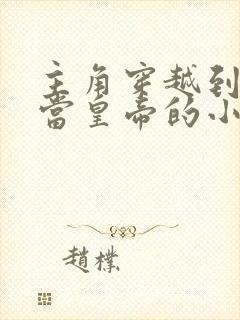 主角穿越到
当皇帝的小
趙樸